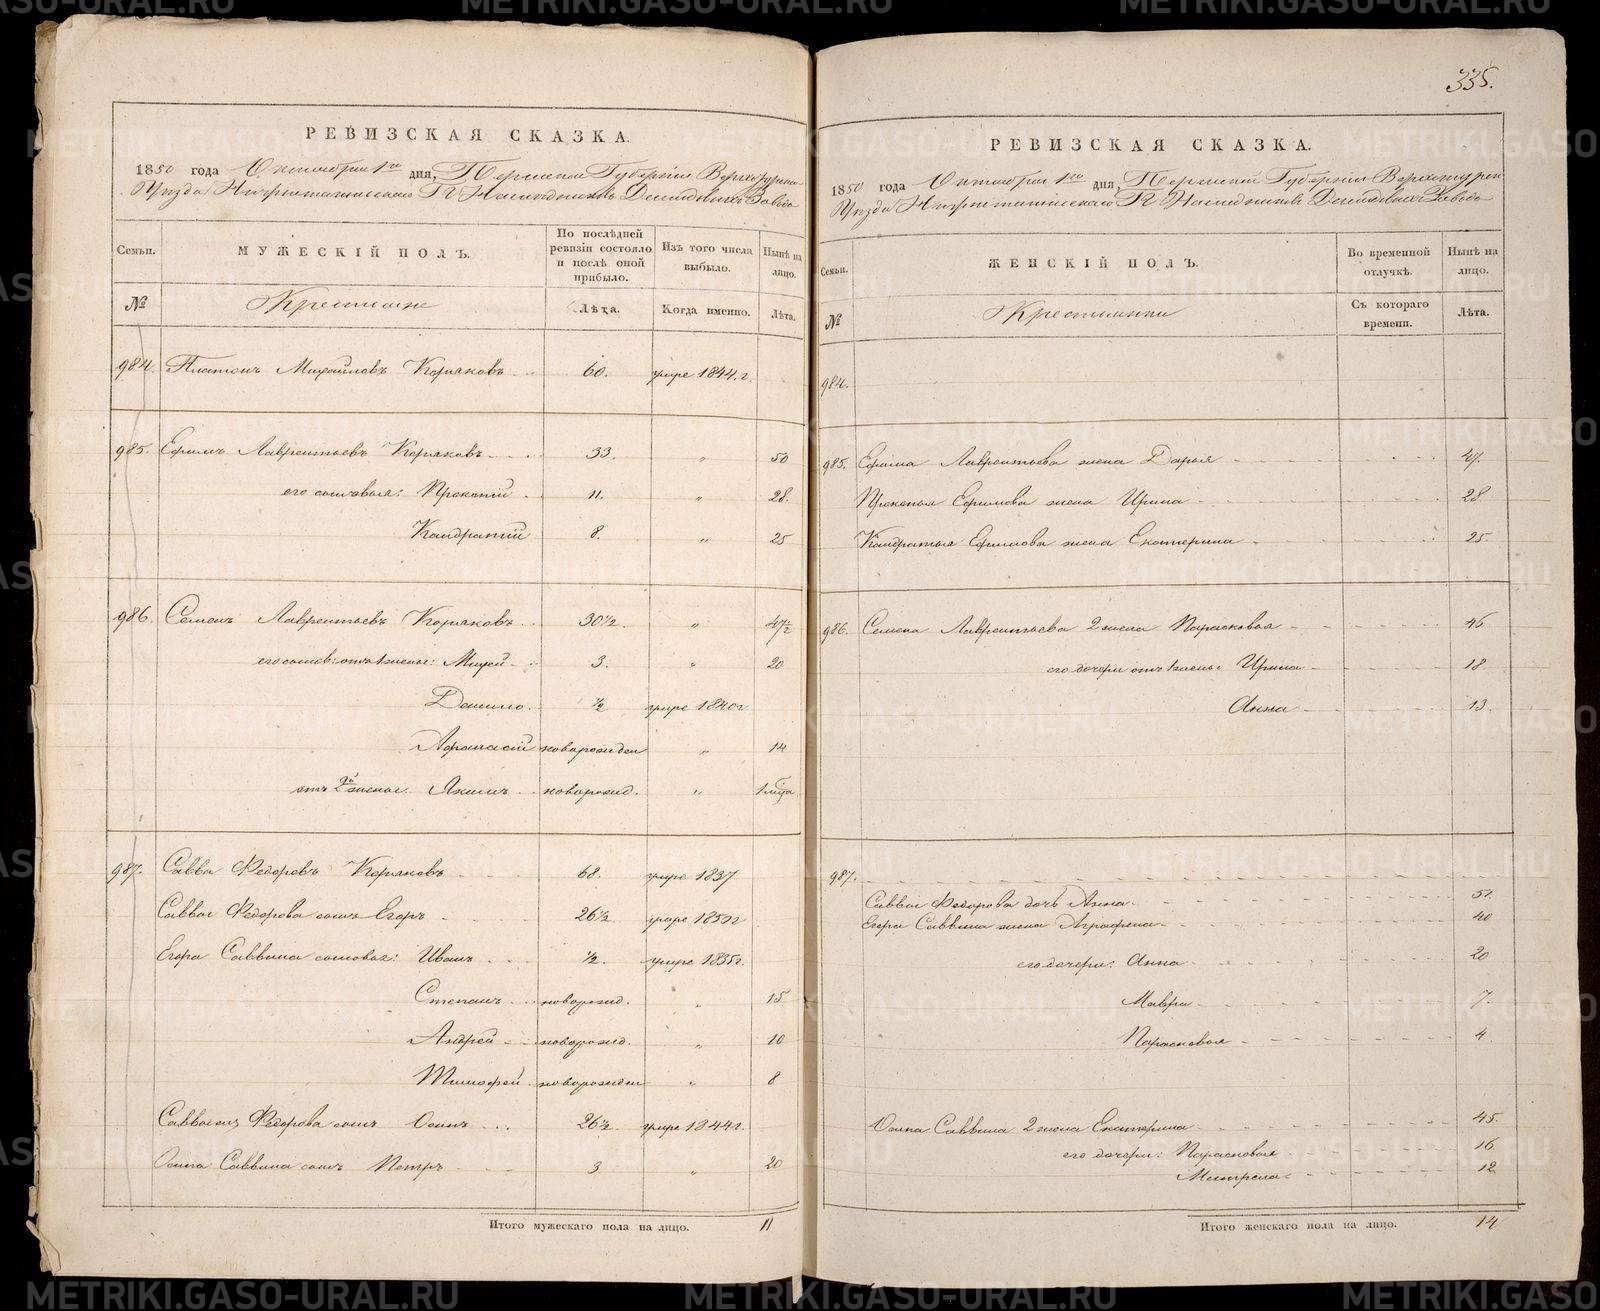 335.
РЕВИЗСКАЯ СКАЗКА.
1850 года Октября 1го дня, Пермской Губернiи Верхотурска
Уѣзда Нижнетагильскаго Гг Наслѣдниковъ Демидовыхъ Завода
Семьи. МУЖЕСКIЙ ПОЛЪ. По послѣдней ревизiи состояло и послѣ оной прибыло. Изъ того числа выбыло. Нынѣ на лицо.
№ Крестьяне Лѣта. Когда именно. Лѣта.
984. Платонъ Михайловъ Коряковъ 60. умре 1844.г.
985. Ефимъ Лаврентьевъ Коряковъ 33. " 50
его сыновья: Прокопiй 11. " 28.
Кандратiй 8. " 25
986. Семенъ Лаврентьевъ Коряковъ 30½. " 47½
его сынов: отъ 1 жены: 3. " 20
Данило ½ умре 1840г
Афанасiй новорожден " 14
отъ 2й жены Якимъ новорожд. " 1 мѣся
987. Савва Федоровъ Коряковъ 68. умре 1837
Саввы Федорова сынъ Егоръ 26½. умре 1850г
Егора Саввина сыновья: Иванъ ½. умре 1835г.
Степанъ новорожд. " 15
Андрей новорожд. " 10
Тимофей новорожден " 8
Федорова сынъ Осипъ 26½. умре 1844г.
Осипа Саввина сынъ Петръ 3 " 20
Итого мужескаго пола на лицо. 11
РЕВИЗСКАЯ СКАЗКА.
1850 года Октября 1го дня, Пермской Губернiи Верхотурск
Уѣзда Нижнетагильскаго Гг Наслѣдниковъ Демидовыхъ Завода
Семьи. ЖЕНСКIЙ ПОЛЪ. Во временной отлучкѣ. Нынѣ на лицо.
№ Крестьянки Съ котораго времени. Лѣта.
984.
985. Ефима Лаврентьева жена Дарья 47.
Прокопья Ефимова жена Ирина 28
Кандратья Ефимова жена Екатерина 25.
986. Семена Лаврентьева 2 жена Парасковья 46
его дочери отъ 1 жены: Ирина 18
Анна 13.
987.
Саввы Федорова дочь Анна 51.
Егора Саввина жена Аграфена 40
его дочери: Анна 20
Мавра 7.
Парасковья 4
Осипа Саввина 2 жена Екатерина 45.
его дочери: Парасковья 16
Матрена 12
Итого женскаго пола на лицо. 14
METRIKI.GASO-URAL.RU